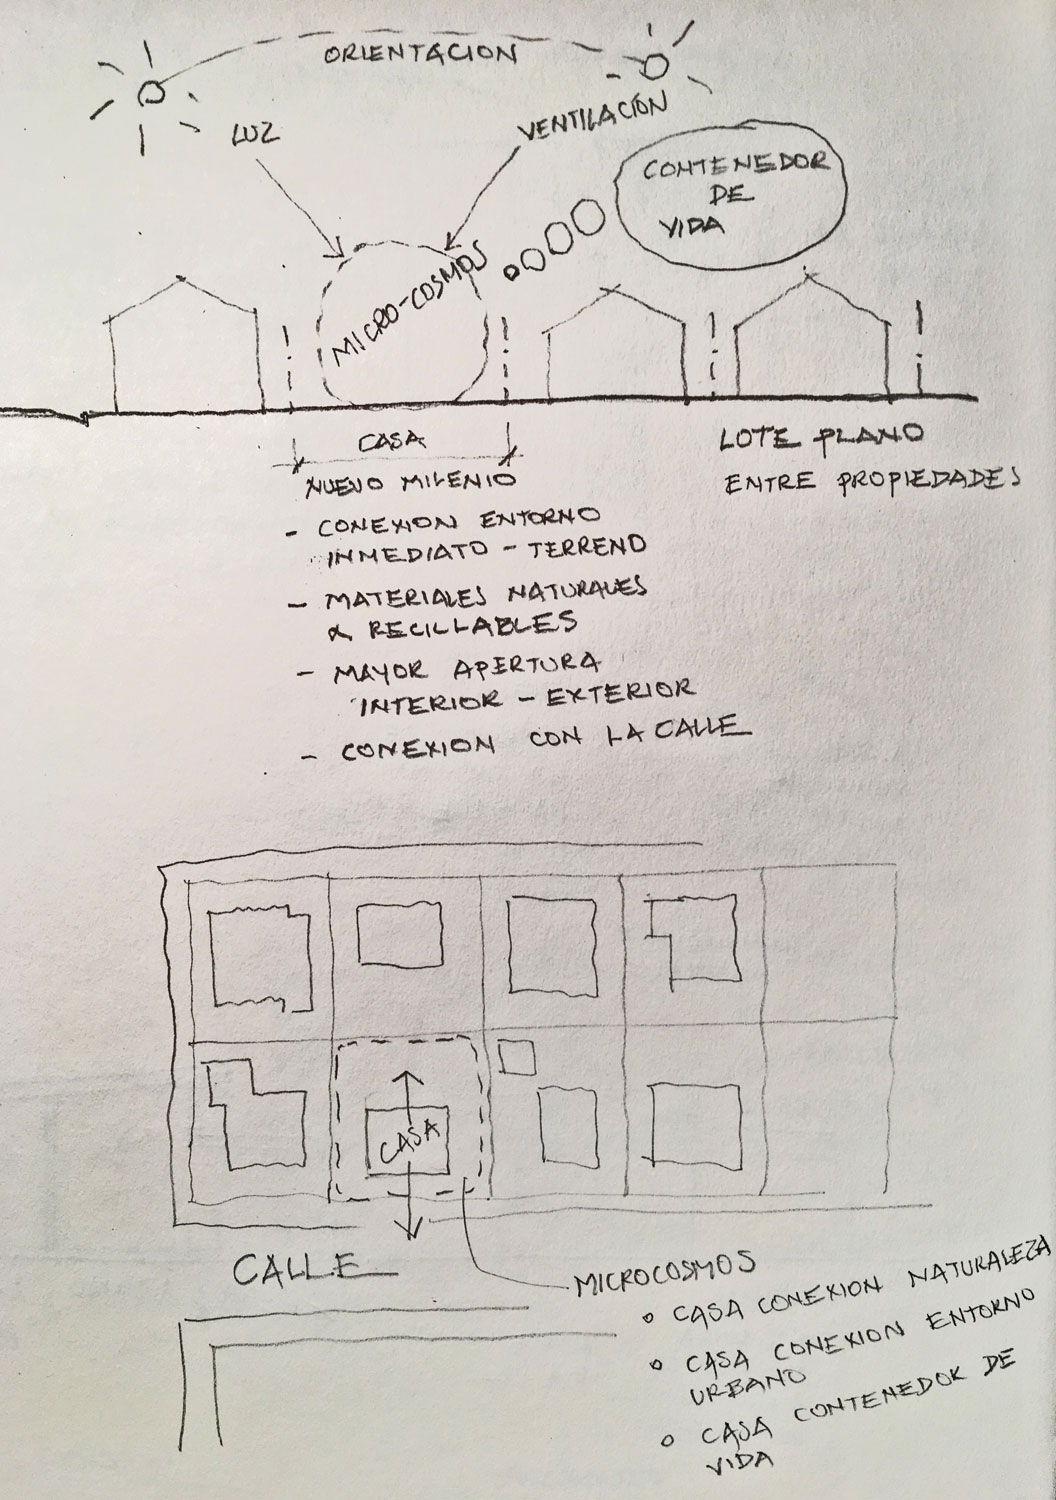 ORIENTACION
LUZ
VENTILACIÓN
CONTENEDOR
DE
VIDA
MICRO-COSMOS
CASA
NUEVO MILENIO
- CONEXION ENTORNO
INMEDIATO - TERRENO
- MATERIALES NATURALES
& RECILLABLES
- MAYOR APERTURA
INTERIOR - EXTERIOR
- CONEXION CON LA CALLE
LOTE PLANO
ENTRE PROPIEDADES
CASA
CALLE
MICROCOSMOS
° CASA CONEXION NATURALEZA
° CASA CONEXION ENTORNO
URBANO
° CASA CONTENEDOR DE
VIDA